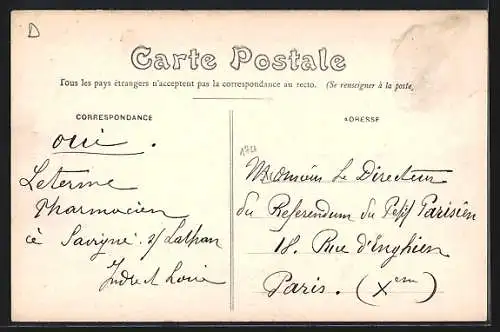 D
Carte Postale
Tous les pays étrangers n'acceptent pas la correspondance au recto. (Se renseigner à la poste,
CORRESPONDANCE
oui.
Leterme
Pharmacien
à Savigné s/ Lathan
Indre et Loire
ADRESSE
Monsieur Le Directeur
du Referendum du Petit Parisien
18. Rue d'Enghien
Paris. (Xeme)